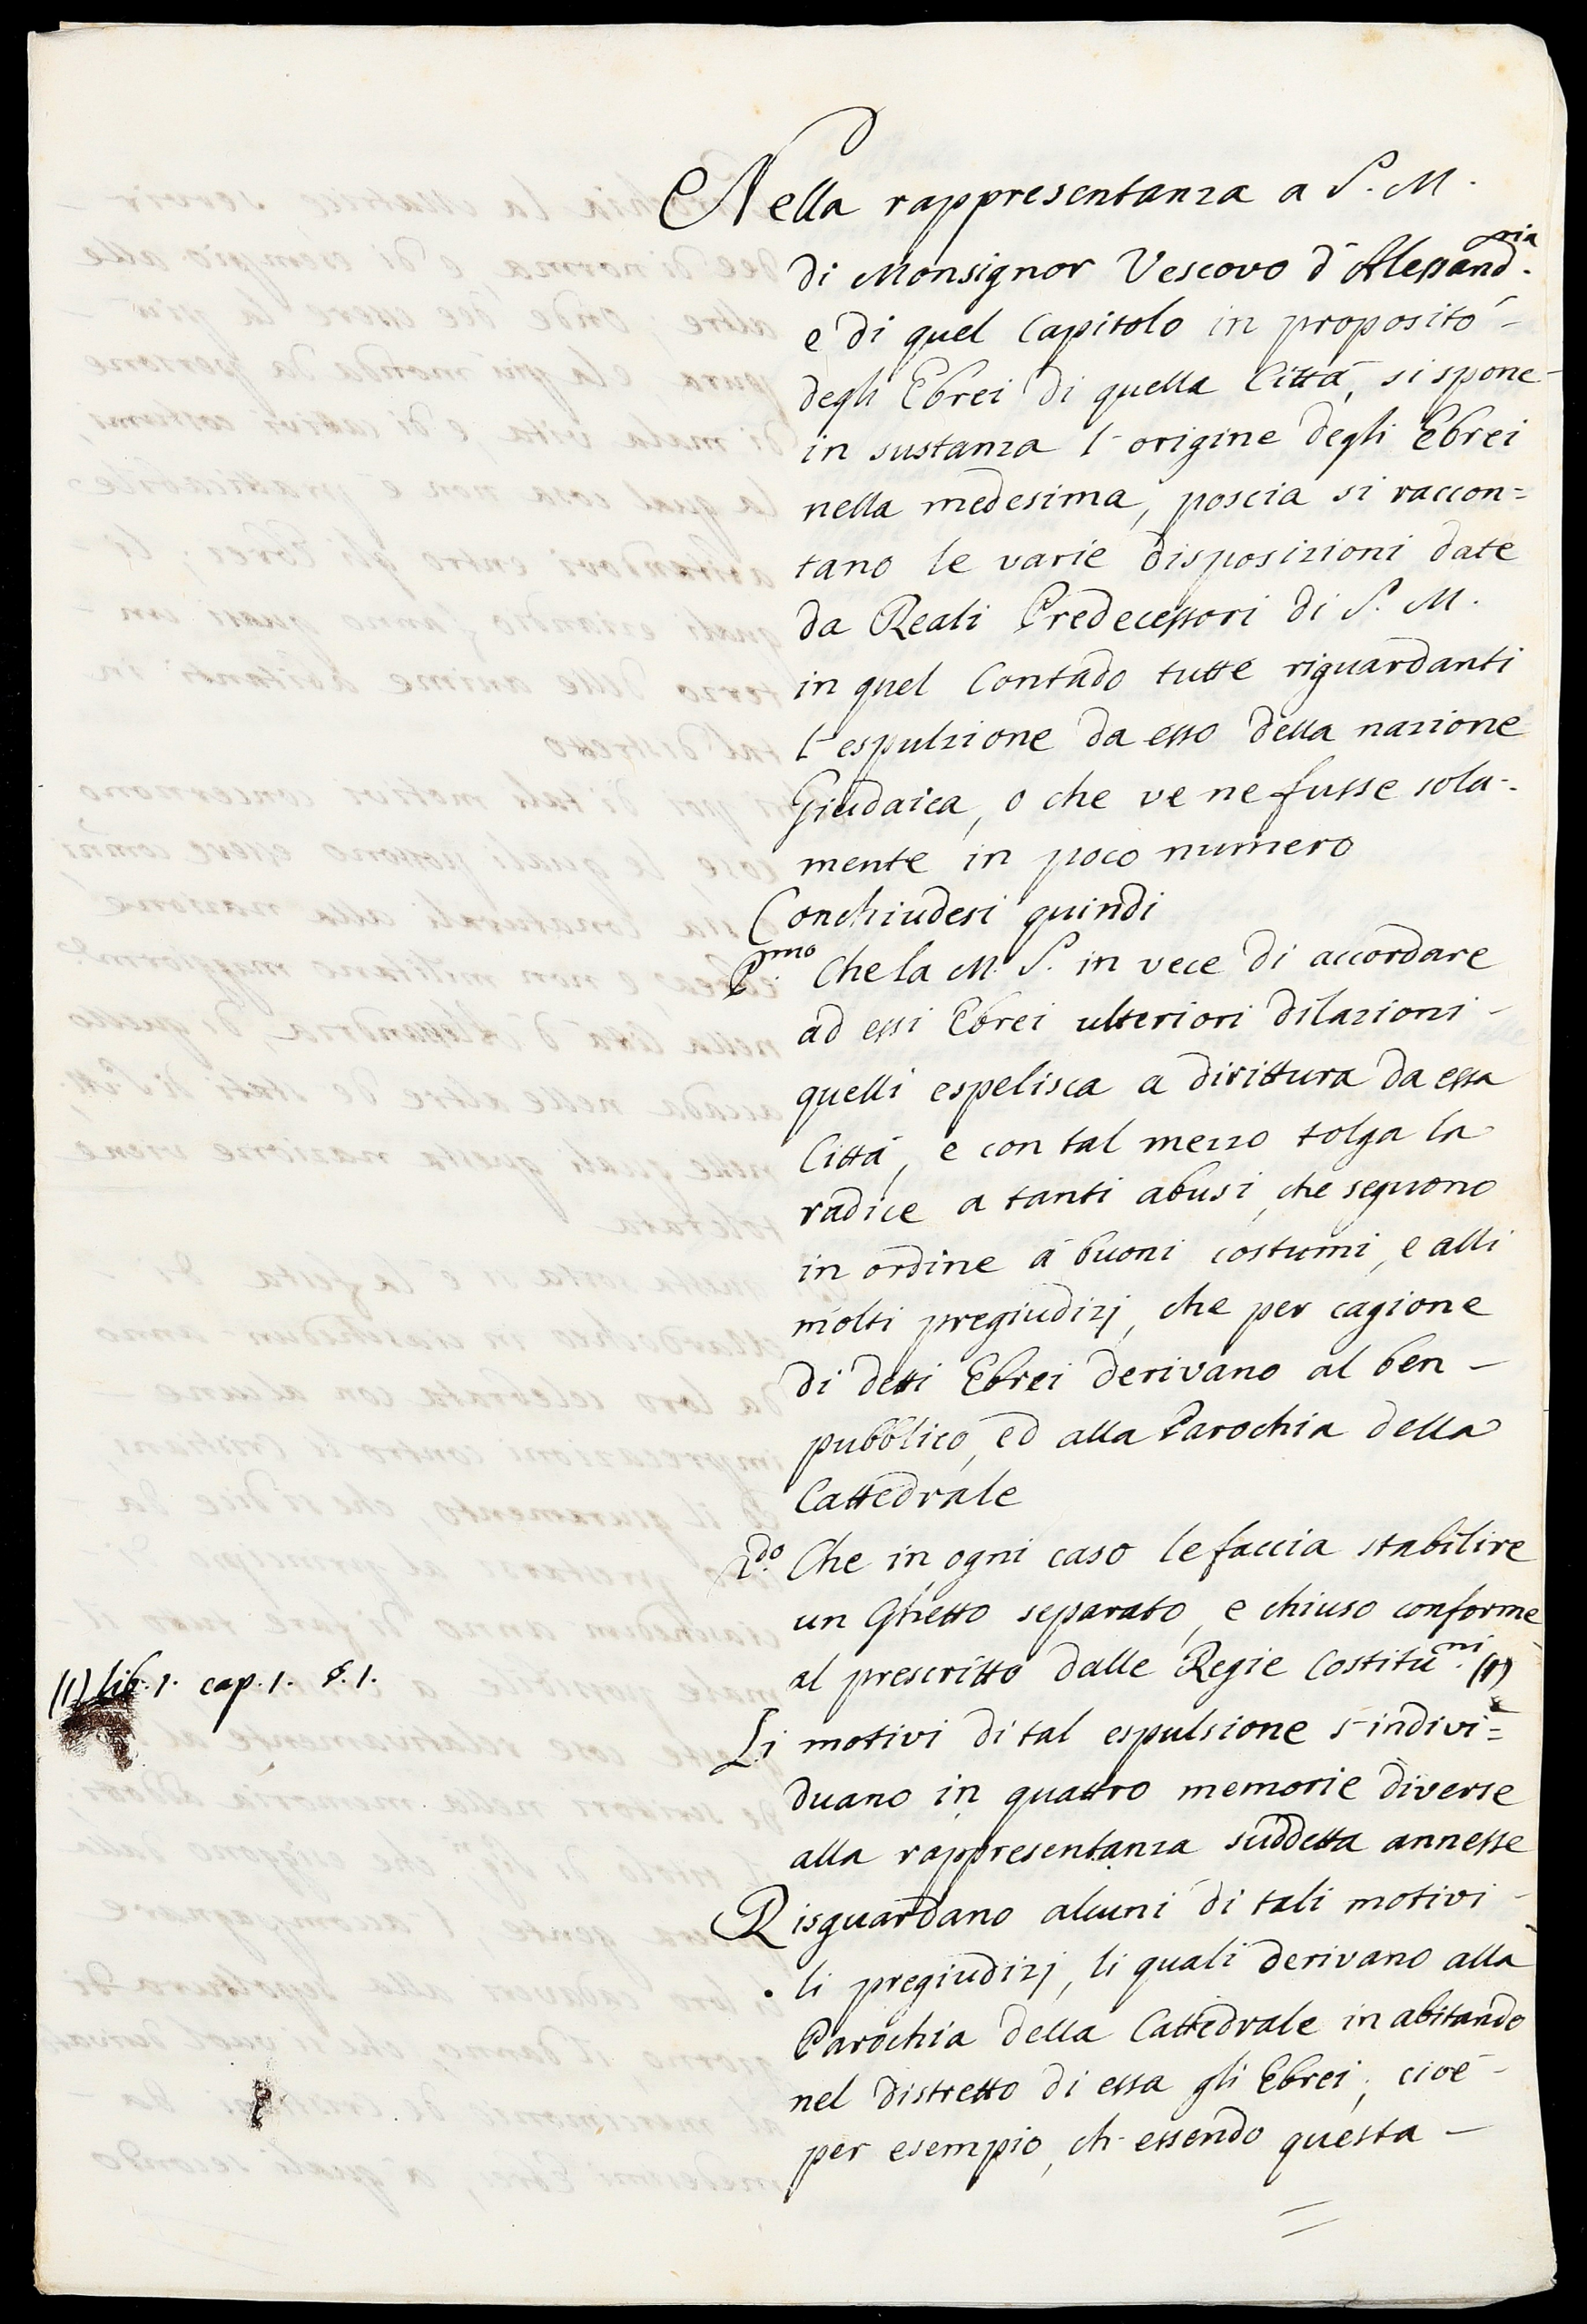 Nella rappresentanza a S. M.
di Monsignor Vescovo d'Alessand.ria
e di quel Capitolo in proposito
degli Ebrei di quella Città, si spone
in sustanza l'origine degli Ebrei
nella medesima, poscia si raccon=
tano le varie disposizioni date
da Reali Predecessori di S. M.
in quel Contado tutte riguardanti
l'espulzione da esso della nazione
Giudaica, o che ve ne fusse sola-
mente in poco numero
Conchiudesi quindi
P.mo Che la M. S. in vece di accordare
ad essi Ebrei ulteriori dilazioni -
quelli espelisca a dirittura da essa
Città, e con tal mezzo tolga la
radice a tanti abusi, che seguono
in ordine a' buoni costumi, e alli
molti pregiudizj, che per cagione
di detti Ebrei derivano al ben -
pubblico, ed alla Parochia della
Cattedrale
2.do Che in ogni caso le faccia stabilire
un Ghetto separato, e chiuso conforme
al prescritto dalle Regie Costitu.ni (1)
(1) lib. 1. cap. 1. §. 1.
Li motivi di tal espulsione s'indivi=
duano in quattro memorie diverse
alla rappresentanza suddetta annesse
Risguardano alcuni di tali motivi -
li pregiudizj, li quali derivano alla
Parochia della Cattedrale in abitando
nel distretto di essa gli Ebrei; cioè -
per esempio, ch'essendo questa -